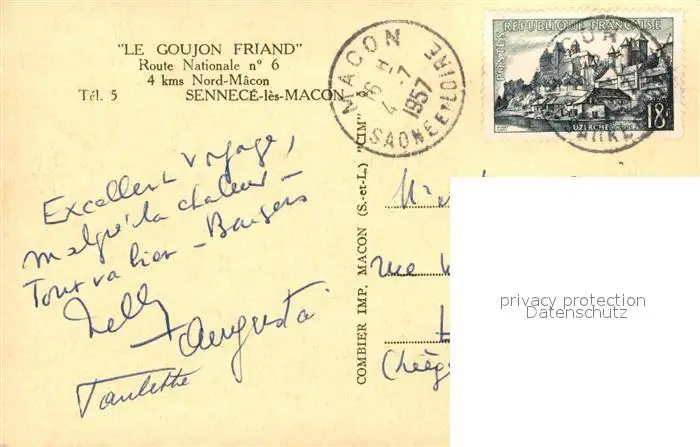 "LE GOUJON FRIAND"
Route Nationale n° 6
4 kms Nord-Mâcon
Tél. 5 SENNECÉ-lès-MACON
MACON
16 H
4 -7
1957
SAONE ET LOIRE
POSTES REPUBLIQUE FRANÇAISE
UZERCHE
18F
COMBIER IMP. MACON (S.-et-L.) "CIM"
Excellent voyage,
malgré la chaleur -
Tout va bien - Baisers
Nelly
Augusta
Paulette
rue
privacy protection
Datenschutz